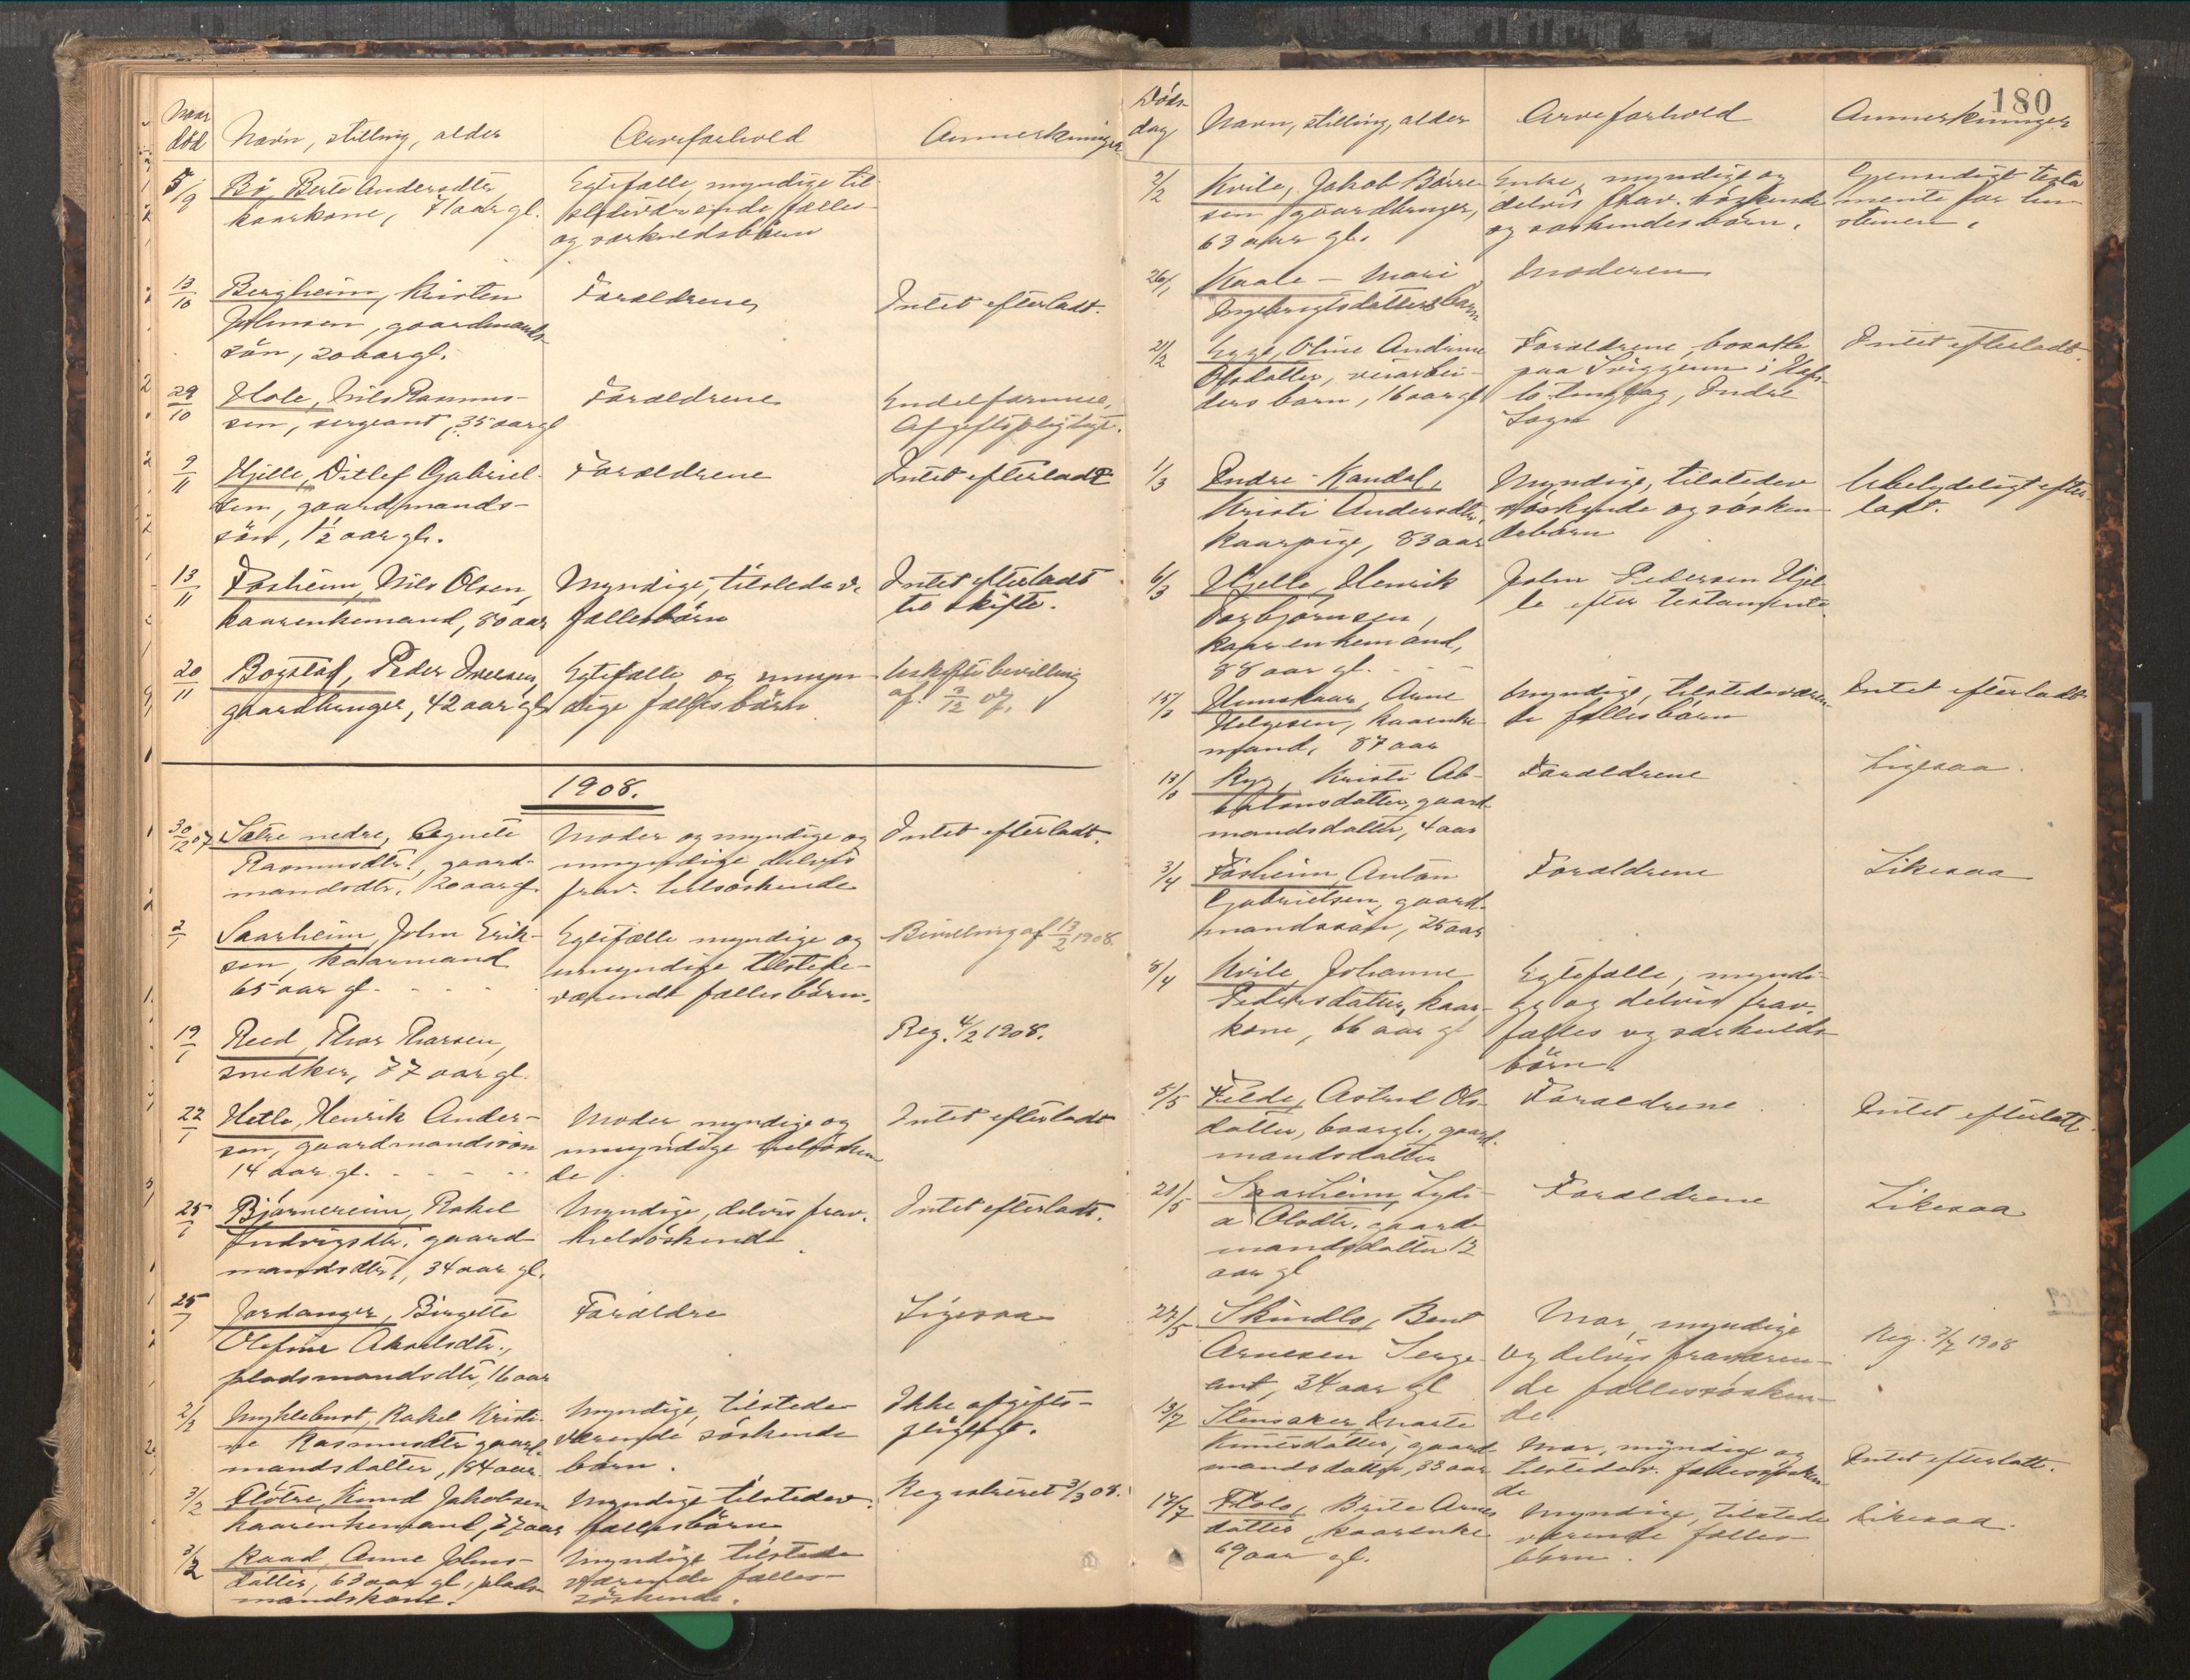 Naar
død
Navn, stilling, alder
Arveforhold
Anmerkninger
5/9
Bö, Berte Andersdtr,
kaarkone, 71 aar gl.
Egtefælle, myndige til-
stedeværende fælles-
og særkuldsbørn
13/10
Bergheim, Kristen
Johnsen, gaardmands-
sön, 20 aar gl.
Forældrene
Intet efterladt.
29/10
Hole, Nils Rasmus-
sen, sergeant, 35 aar gl
Forældrene
Endel formue,
Afgiftspligtigt.
9/11
Hjelle, Ditlef Gabriel-
sen, gaardmands-
sön, 1/2 aar gl.
Forældrene
Intet efterladt
13/11
Fosheim, Nils Olsen,
kaarenkemand, 80 aar
Myndige, tilstedev.
fællesbörn
Intet efterladt
til skifte.
20/11
Bogstad, Peder Iversen,
gaardbruger, 42 aar gl.
Egtefælle og umyn-
dige fællesbörn
Uskiftebevilling
af 3/12 07.
1908.
30/12 07
Sætre nedre, Agnete
Rasmusdtr., gaard-
mandsdtr. 20 aar gl.
Moder og myndige og
umyndige delvis
frav. helsöskende
Intet efterladt.
2/1
Saarheim, John Erik-
sen, kaarmand
65 aar gl.
Egtefælle myndige og
umyndige tilstede-
værende fællesbörn.
Bevilling af 13/2 1908.
19/1
Reed, Thor Thorsen,
snedker, 77 aar gl.
Reg. 4/2 1908.
22/1
Hetle, Henrik Ander-
sen, gaardmandssön
14 aar gl.
Moder myndige og
umyndige helsösken
de
Intet efterladt
25/1
Bjørnereim, Rakel
Ludvigsdtr. gaard
mandsdtr., 34 aar gl.
Myndige, delvis frav.
helsöskende
Intet efterladt.
25/1
Jordanger, Birgette
Olefine Akselsdtr.,
pladsmandsdtr, 16 aar
Forældre
Ligesaa
2/2
Myklebust, Rakel Kristi-
ne Rasmusdtr gaard-
mandsdatter, 84 aar.
Myndige, tilstede
værende söskende
børn.
Ikke afgifts-
pligtigt.
3/2
Flötre, Knud Jakobsen
kaarenkemand, 77 aar
Myndige tilstedev.
fællesbörn
Registreret 3/3 08.
3/2
Raad, Anne Johns-
datter, 63 aar gl., plads-
mandskone.
Myndige tilstede
værende fælles-
söskende.
180
Döds-
dag
Navn, stilling, alder
Arveforhold
Anmerkninger
2/2
Kvile, Jakob Börre-
sen gaardbruger,
63 aar gl.
Enke, myndige og
delvis frav. söskende
og söskendesbörn.
Gjensidigt testa
mente for
26/1
Kaale - Mari
Ingebrigtsdatters barn
Moderen
21/2
Egge, Oline Andrine
Olsdatter, veiarbei-
ders barn, 16 aar gl
Forældrene, bosatte
paa i Haf-
lo tinglag, Indre
Sogn
Intet efterladt.
1/3
Indre-Kandal,
Kristi Andersdtr,
kaarpige, 83 aar
Myndige, tilstedev
söskende og sösken
debörn
Ubetydeligt efter-
ladt.
6/3
Hjelle, Henrik
Torbjørnsen,
kaarenkemand,
88 aar gl.
John Pedersen Hjel-
le efter testamente
15/3
Hunskaar, Arne
Helgesen, kaarenke-
mand, 87 aar
Myndige, tilstedeværen-
de fællesbörn
Intet efterladt
13/3
Ryg, Kristi Ab-
salonsdatter, gaard-
mandsdatter, 4 aar
Forældrene
Ligesaa.
3/4
Fosheim, Anton
Gabrielsen, gaard-
mandssön, 25 aar
Forældrene
Likesaa
8/4
Kvile Johanne
Pedersdatter, kaar-
kone, 66 aar gl
Egtefælle, myndi-
ge og delvis frav.
fælles og særkulds-
börn.
5/5
Felde, Astrid Ols-
datter, 6 aar gl., gaard-
mandsdatter
Forældrene
Intet efterlatt.
21/5
Saarheim, Lydi-
a Olsdtr. gaard-
mandsdatter 12
aar gl
Forældrene
Likesaa
22/5
Skindlo, Bent
Arnesen Serge-
ant, 34 aar gl
Mor, myndige
og delvis fraværen-
de fællessösken-
de.
Reg. 2/7 1908
13/7
Stensaker, Marte
gaard-
mandsdatter, 33 aar
Mor, myndige og
tilstedev. fællessösken-
de
Intet efterlatt.
17/7
Flolo, Brite Arnes
datter, kaarenke
69 aar gl.
Myndige, tilstede
værende fælles-
börn.
Likesaa.